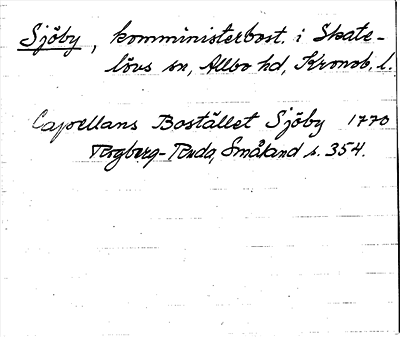 Sjöby, komministerbost. i Skate-
lövs sn, Allbo hd, Kronob. l.
Capellans Bostället Sjöby 1770
Rogberg-Ruda, Småland s. 354.